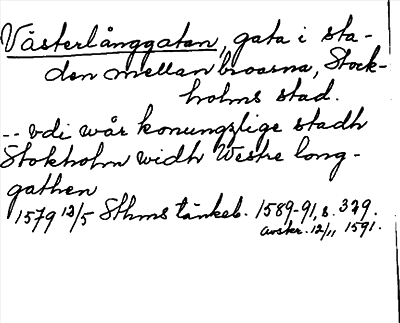 Västerlånggatan, gata i sta-
den mellan broarna, Stock-
holms stad.
-- vdi wår konungzlige stadh
Stokholm widh Westre long-
gathen
1579 12/5 Sthms tänkeb. 1589-91, s. 379.
avskr. 12/11 1591.